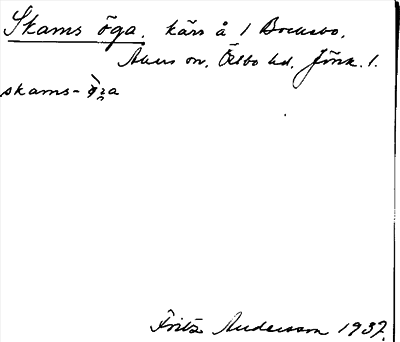 Skams öga. kärr å 1 Bocksbo,
Åkers sn. Östbo hd. Jönk. l.
skams-
Fritz Andersson 1937.